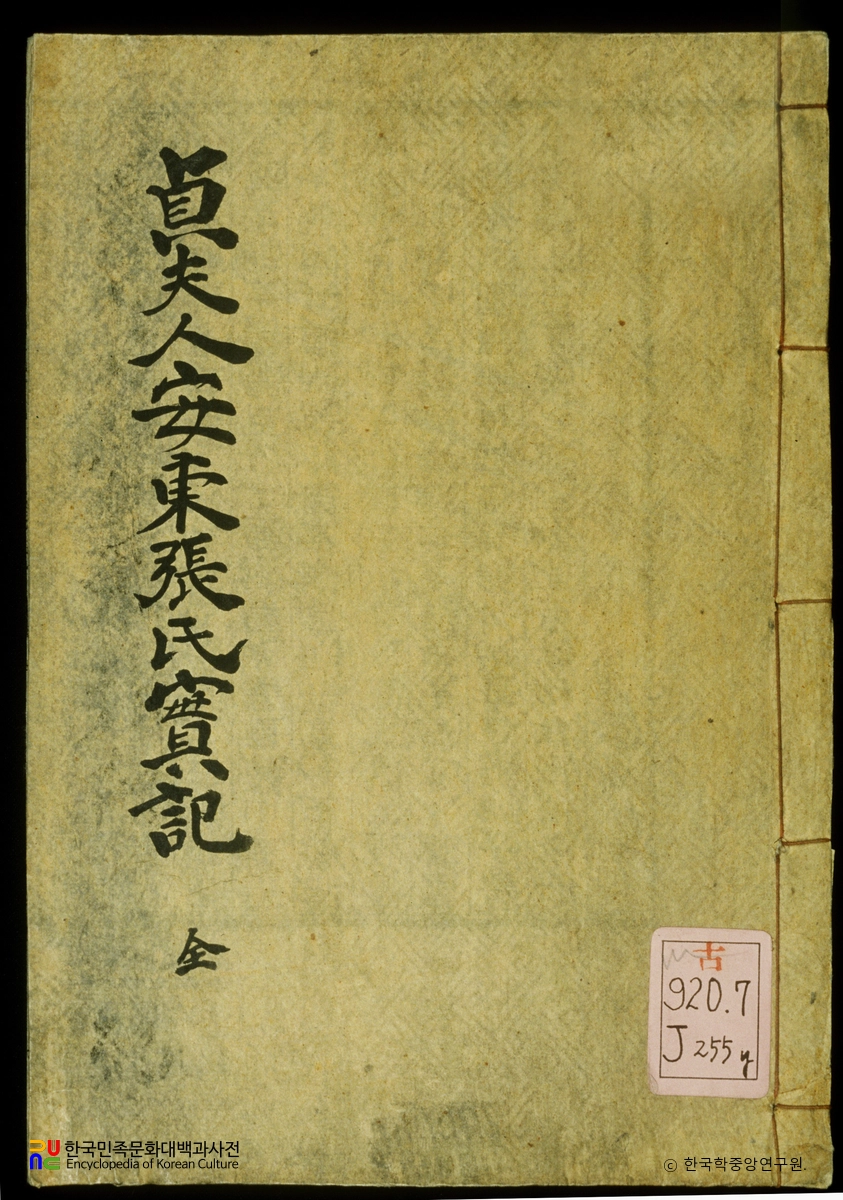 貞夫人安東張氏實記
全
古
920.7
J255y
한국민족문화대백과사전
Encyclopedia of Korean Culture
© 한국학중앙연구원.